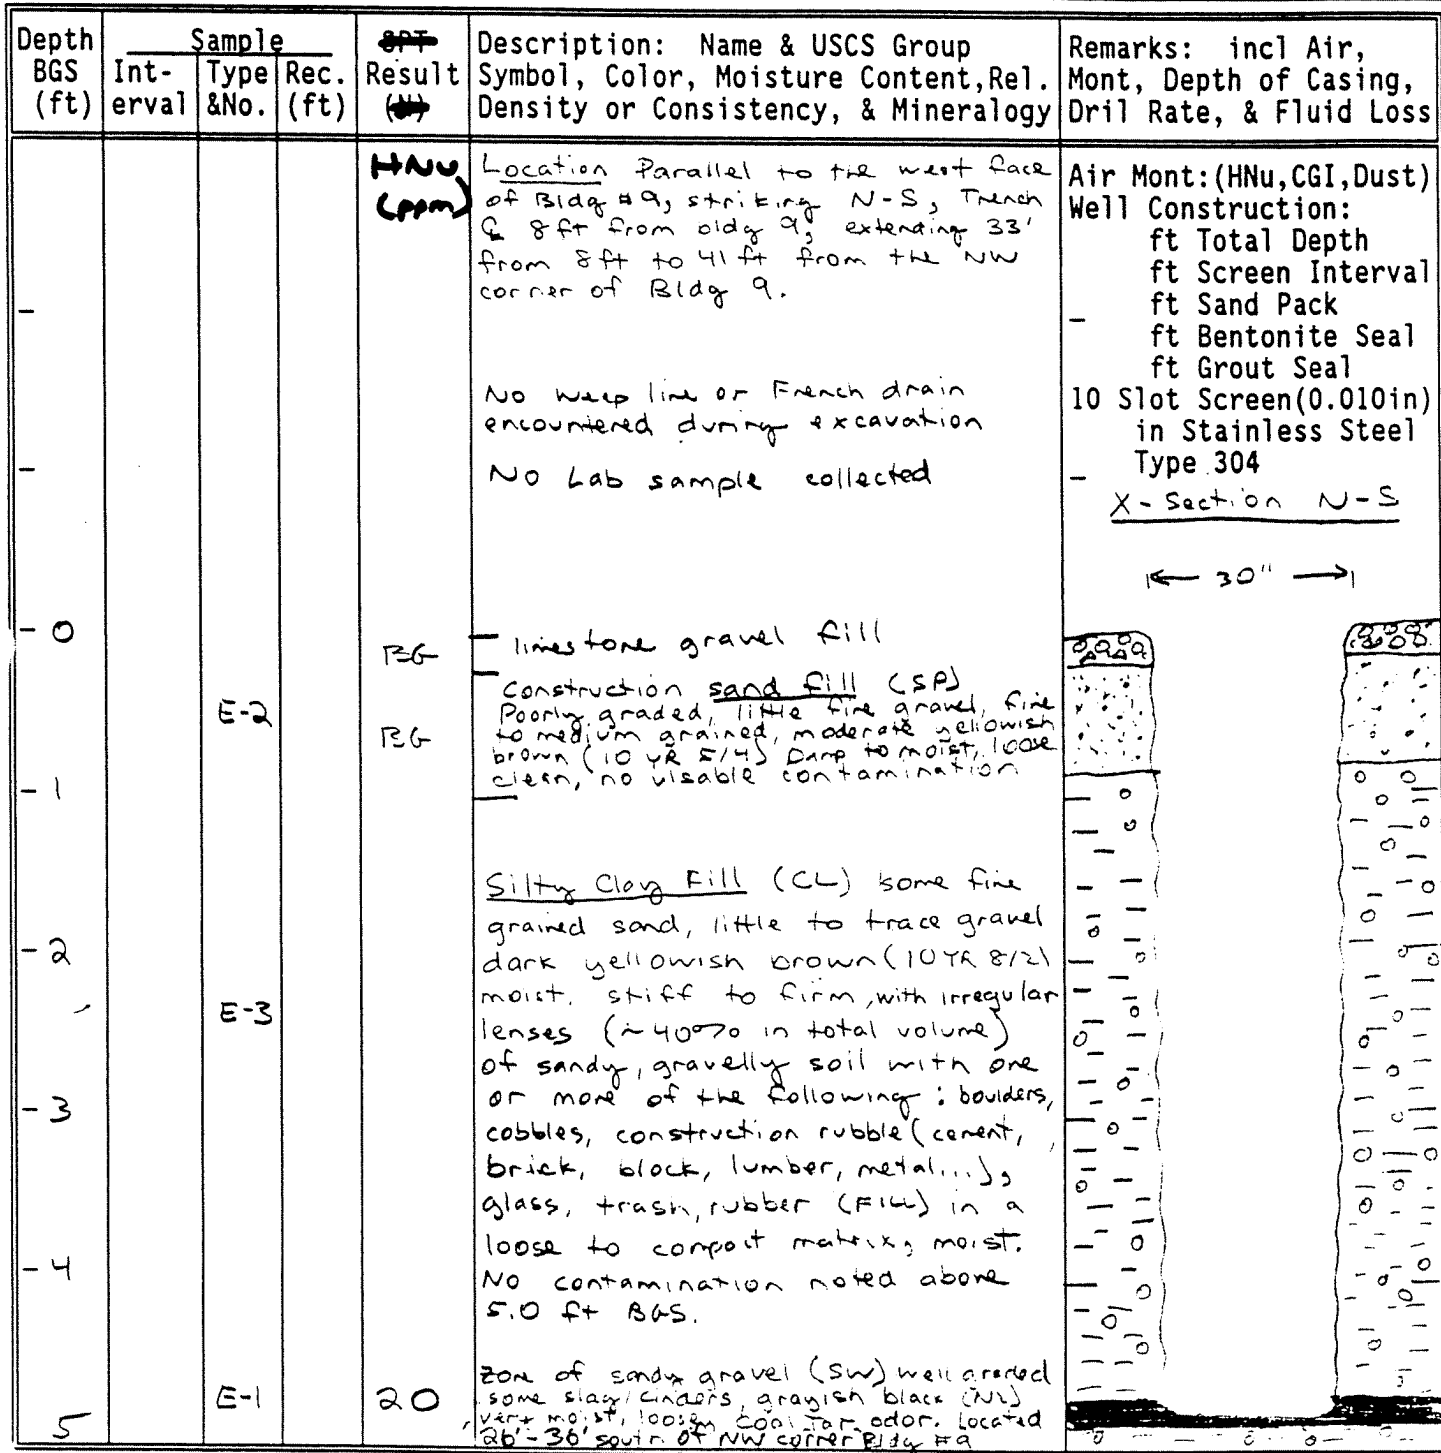 Depth BGS (ft)
Sample
Int- erval
Type &No.
Rec. (ft)
SPT Result (N)
Description: Name & USCS Group
Symbol, Color, Moisture Content,Rel.
Density or Consistency, & Mineralogy
Remarks: incl Air,
Mont, Depth of Casing,
Dril Rate, & Fluid Loss
HNu
(ppm)
Location Parallel to the west face
of Bldg #9, striking N-S, Trench
℄ 8ft from bldg 9, extending 33'
from 8 ft to 41 ft from the NW
corner of Bldg 9.
No weep line or French drain
encountered during excavation
No Lab sample collected
Air Mont:(HNu,CGI,Dust)
Well Construction:
ft Total Depth
ft Screen Interval
ft Sand Pack
ft Bentonite Seal
ft Grout Seal
10 Slot Screen(0.010in)
in Stainless Steel
Type 304
X-Section N-S
30"
0
BG
limestone gravel fill
Construction sand fill (SP)
E-2
BG
Poorly graded, little fine gravel, fine
to medium grained, moderate yellowish
brown (10 YR 5/4) Damp to moist, loose
clean, no visable contamination
1
Silty Clay Fill (CL) some fine
grained sand, little to trace gravel
2
dark yellowish brown (10YR 8/2)
moist, stiff to firm, with irregular
E-3
lenses (~40% in total volume)
of sandy, gravelly soil with one
3
or more of the following: boulders,
cobbles, construction rubble (cement,
brick, block, lumber, metal...),
glass, trash, rubber (FILL) in a
loose to compact matrix, moist.
4
No contamination noted above
5.0 ft BGS.
zone of sandy gravel (SW) well graded
E-1
20
some slag/cinders, grayish black (N2)
5
very moist, loose, coal tar odor. Located
26'-36' south of NW corner Bldg #9